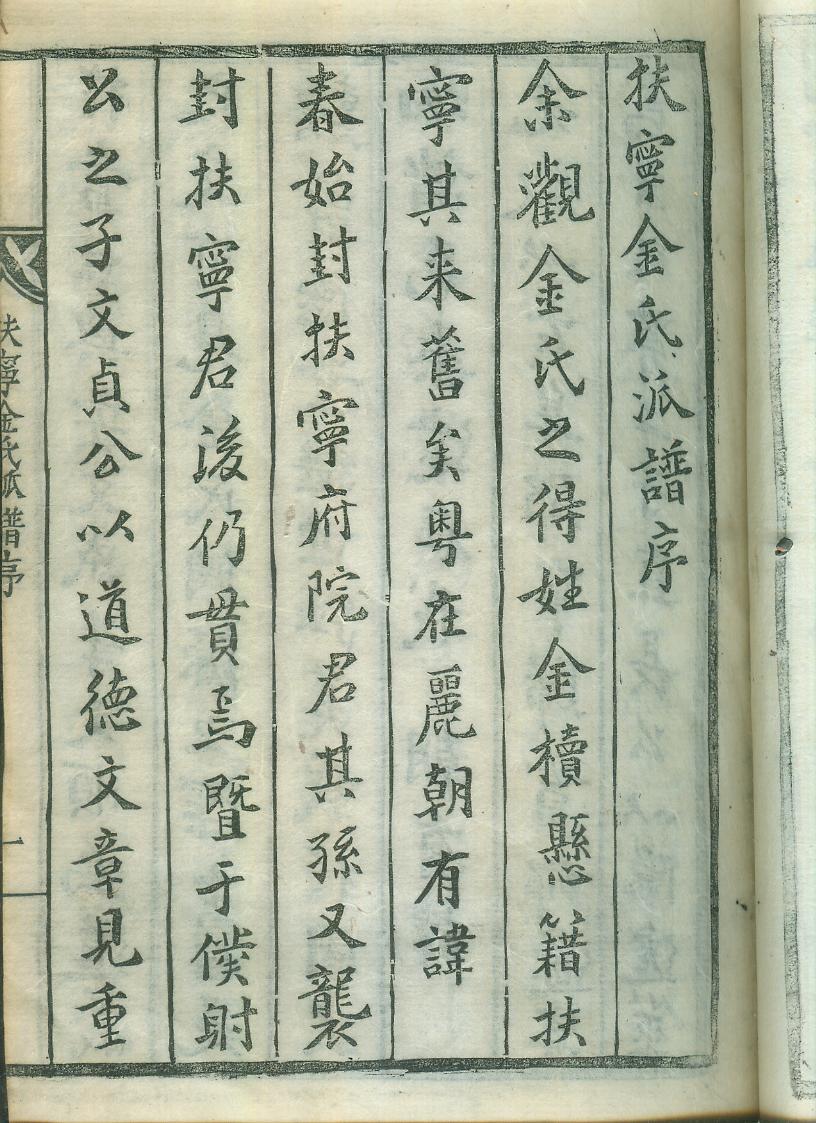 扶寧金氏派譜序
余觀金氏之得姓金櫝懸籍扶
寧其来舊矣粤在麗朝有諱
春始封扶寧府院君其孫又襲
封扶寧君後仍貫焉暨于僕射
公之子文貞公以道德文章見重
扶寧金氏派譜序
一